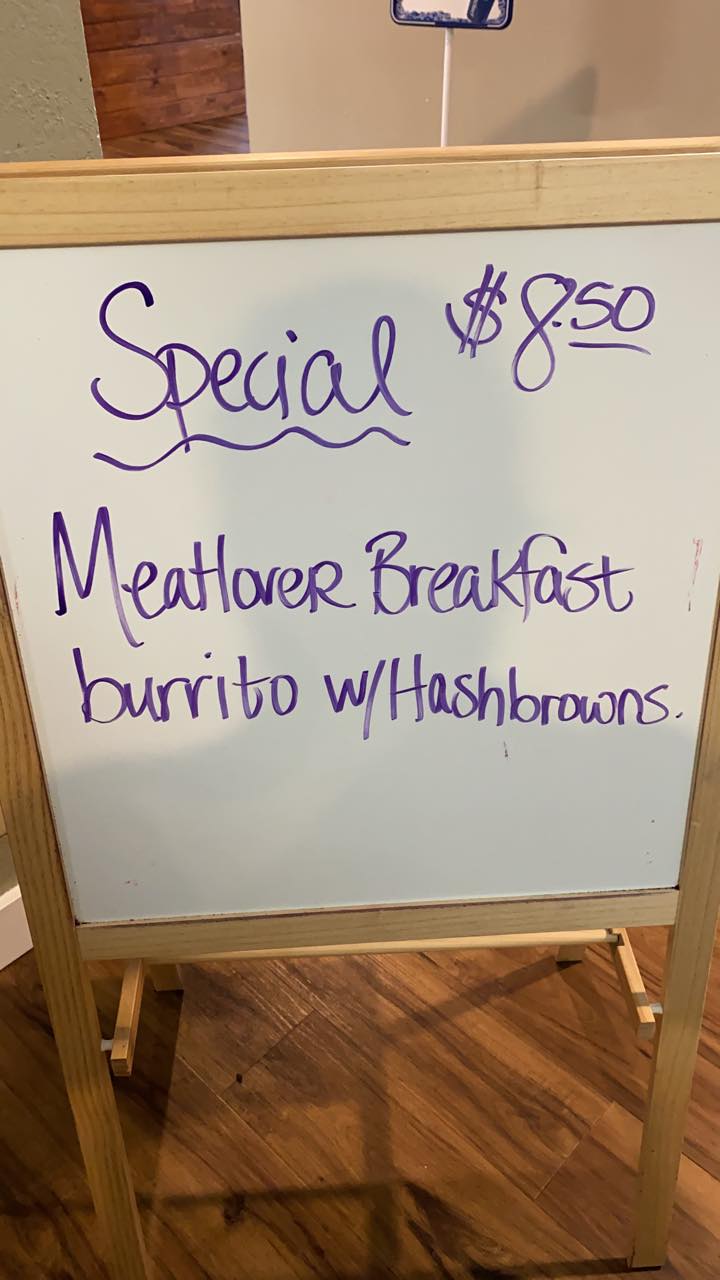 Special $8.50
MeatloveR Breakfast
burrito w/Hashbrowns.